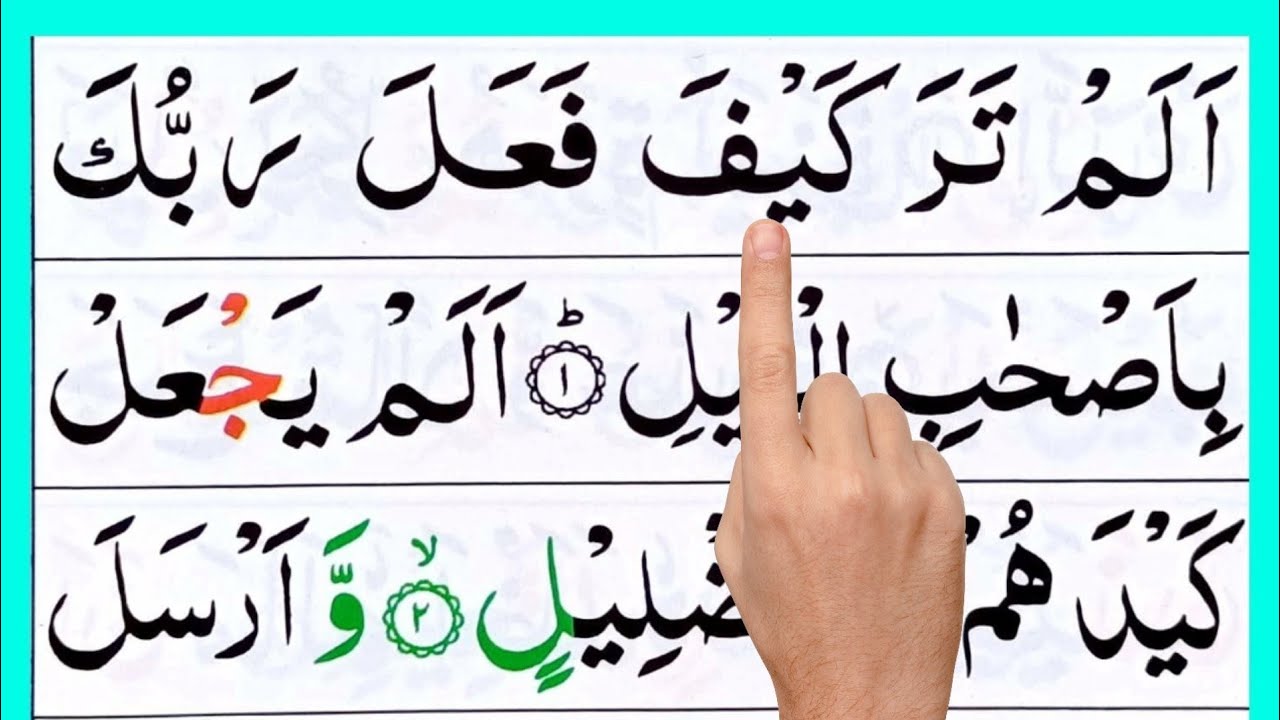 اَلَمْ تَرَ كَيْفَ فَعَلَ رَبُّكَ
بِاَصْحٰبِ الْفِيْلِ ؕ ١ اَلَمْ يَجْعَلْ
كَيْدَ هُمْ ضْلِيْلٍ ۙ ٢ وَّ اَرْسَلَ